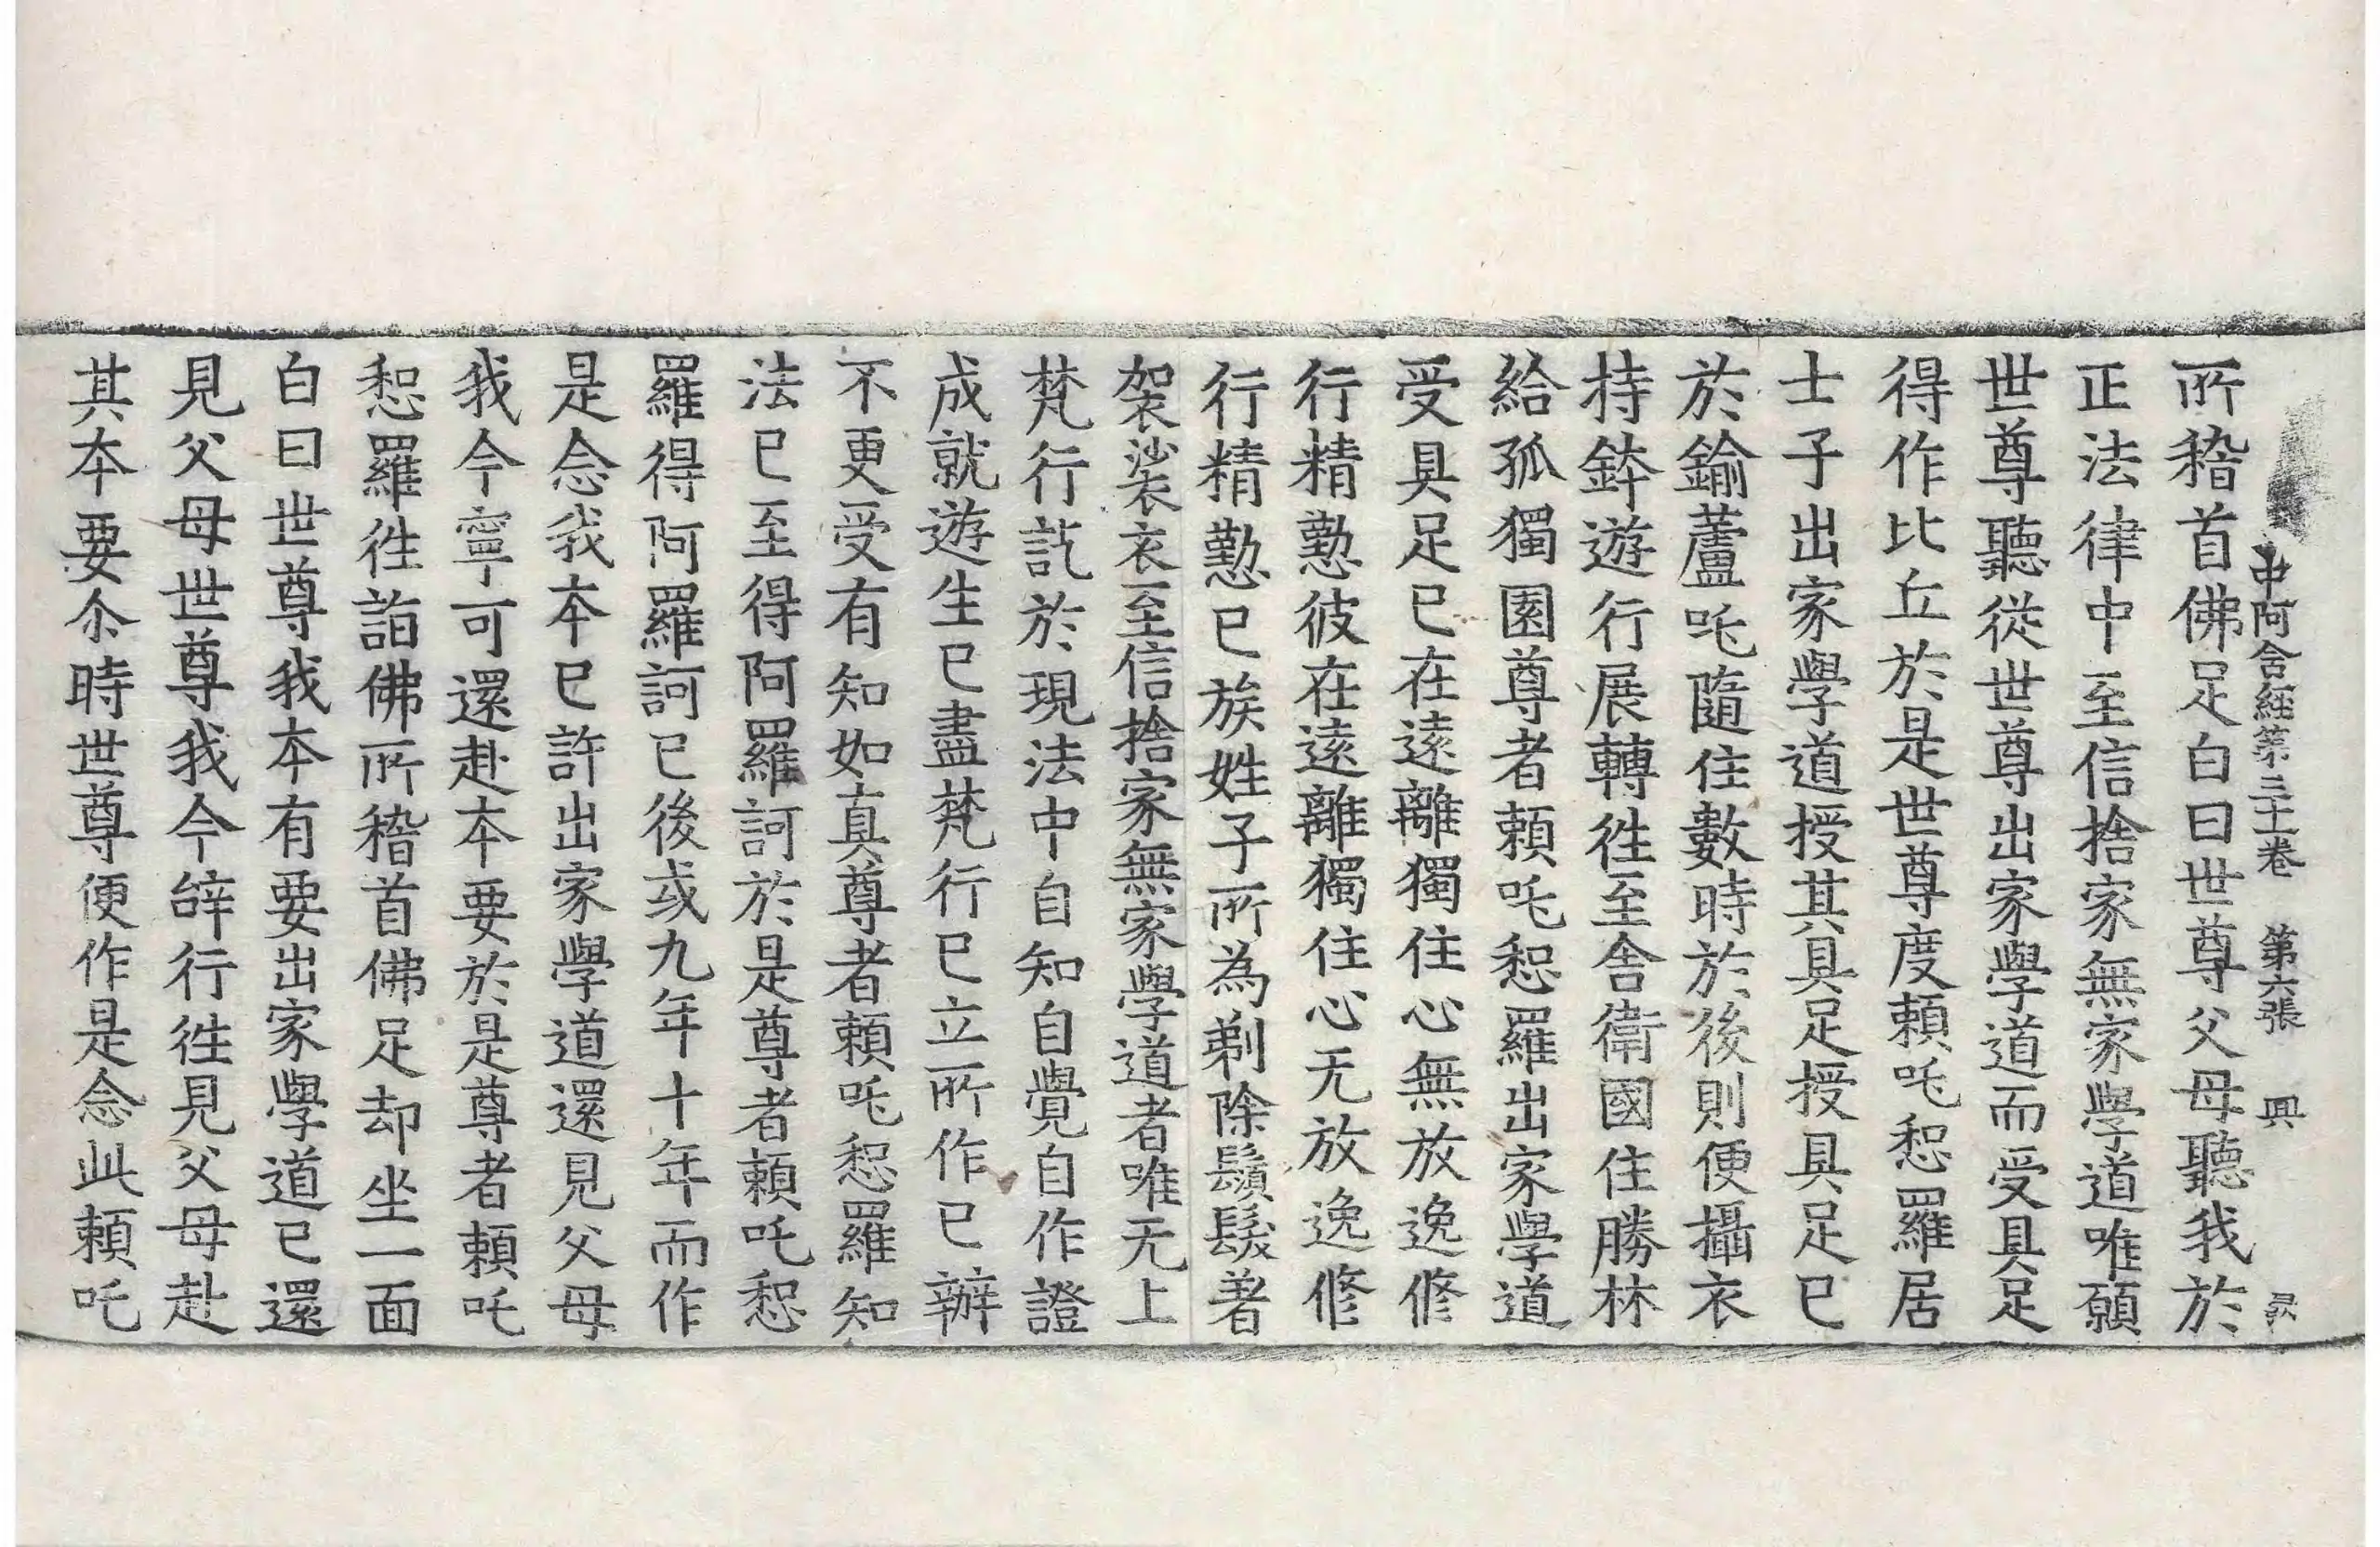 中阿含經第三十一卷　第六張　興
所稽首佛足白曰世尊父母聽我於
正法律中至信捨家無家學道唯願
世尊聽從世尊出家學道而受具足
得作比丘於是世尊度賴吒惒羅居
士子出家學道授其具足授具足已
於鍮蘆吒隨住數時於後則便攝衣
持鉢遊行展轉往至舍衛國住勝林
給孤獨園尊者賴吒惒羅出家學道
受具足已在遠離獨住心無放逸修
行精懃彼在遠離獨住心无放逸修
行精懃已族姓子所為剃除鬚髮著
袈裟衣至信捨家無家學道者唯无上
梵行訖於現法中自知自覺自作證
成就遊生已盡梵行已立所作已辦
不更受有知如真尊者賴吒惒羅知
法已至得阿羅訶於是尊者賴吒惒
羅得阿羅訶已後或九年十年而作
是念我本已許出家學道還見父母
我今寧可還赴本要於是尊者賴吒
惒羅往詣佛所稽首佛足却坐一面
白曰世尊我本有要出家學道已還
見父母世尊我今辝行往見父母赴
其本要尒時世尊便作是念此賴吒